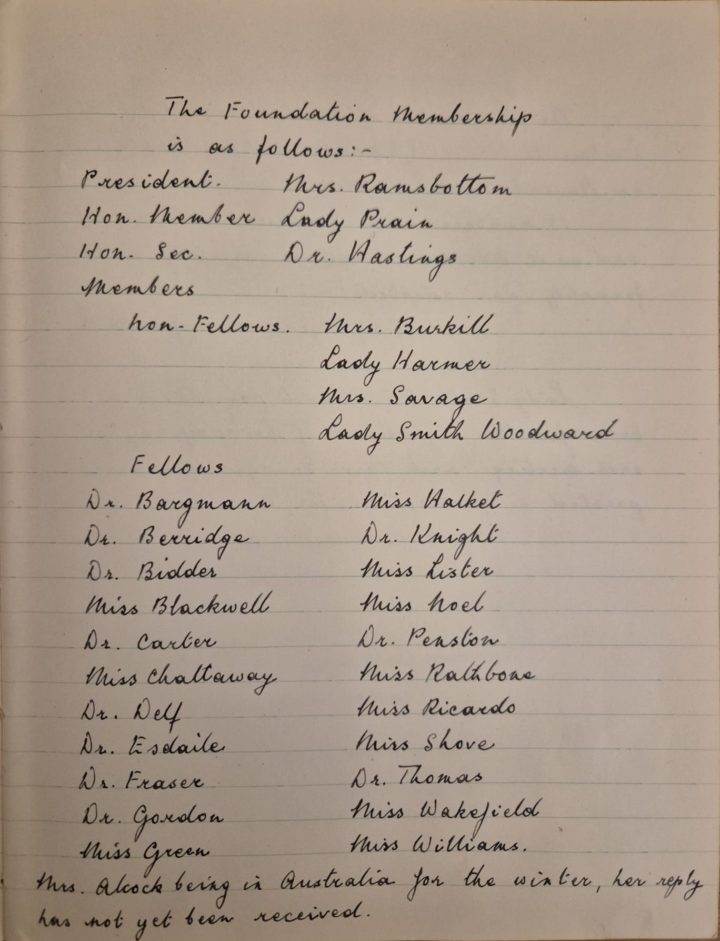 The Foundation Membership
is as follows:-
President. Mrs. Ramsbottom
Hon. Member Lady Prain
Hon. Sec. Dr. Hastings
Members
Non-Fellows. Mrs. Burkill
Lady Harmer
Mrs. Savage
Lady Smith Woodward
Fellows
Dr. Bargmann Miss Halket
Dr. Berridge Dr. Knight
Dr. Bidder Miss Lister
Miss Blackwell Miss Noel
Dr. Carter Dr. Penston
Miss Chattaway Miss Rathbone
Dr. Delf Miss Ricardo
Dr. Esdaile Miss Shove
Dr. Fraser Dr. Thomas
Dr. Gordon Miss Wakefield
Miss Green Miss Williams.
Mrs. Alcock being in Australia for the winter, her reply
has not yet been received.